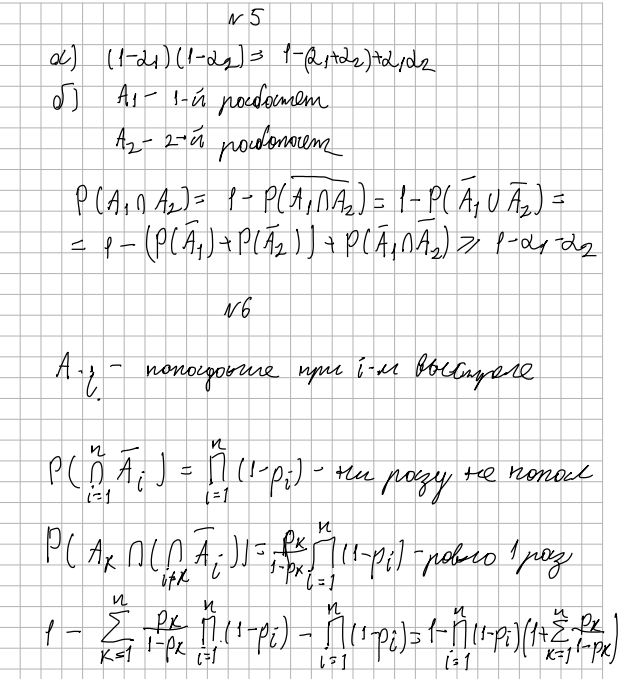 №5
а) (1-α₁)(1-α₂) = 1-(α₁+α₂)+α₁α₂
б) A₁ - 1-й работает
A₂ - 2-й работает
P(A₁∩A₂) = 1-P(\overline{A₁∩A₂}) = 1-P(Ā₁∪Ā₂) =
= 1-(P(Ā₁)+P(Ā₂))+P(Ā₁∩Ā₂) ⩾ 1-α₁-α₂
№6
A_i - попадание при i-м выстреле
P(\bigcap_{i=1}^{n} Ā_i) = \prod_{i=1}^{n} (1-p_i) - ни разу не попал
P(A_k∩(\bigcap_{i≠k} Ā_i)) = \frac{p_k}{1-p_k} \prod_{i=1}^{n} (1-p_i) - ровно 1 раз
1 - \sum_{k=1}^{n} \frac{p_k}{1-p_k} \prod_{i=1}^{n} (1-p_i) - \prod_{i=1}^{n} (1-p_i) = 1-\prod_{i=1}^{n} (1-p_i)(1+\sum_{k=1}^{n} \frac{p_k}{1-p_k})